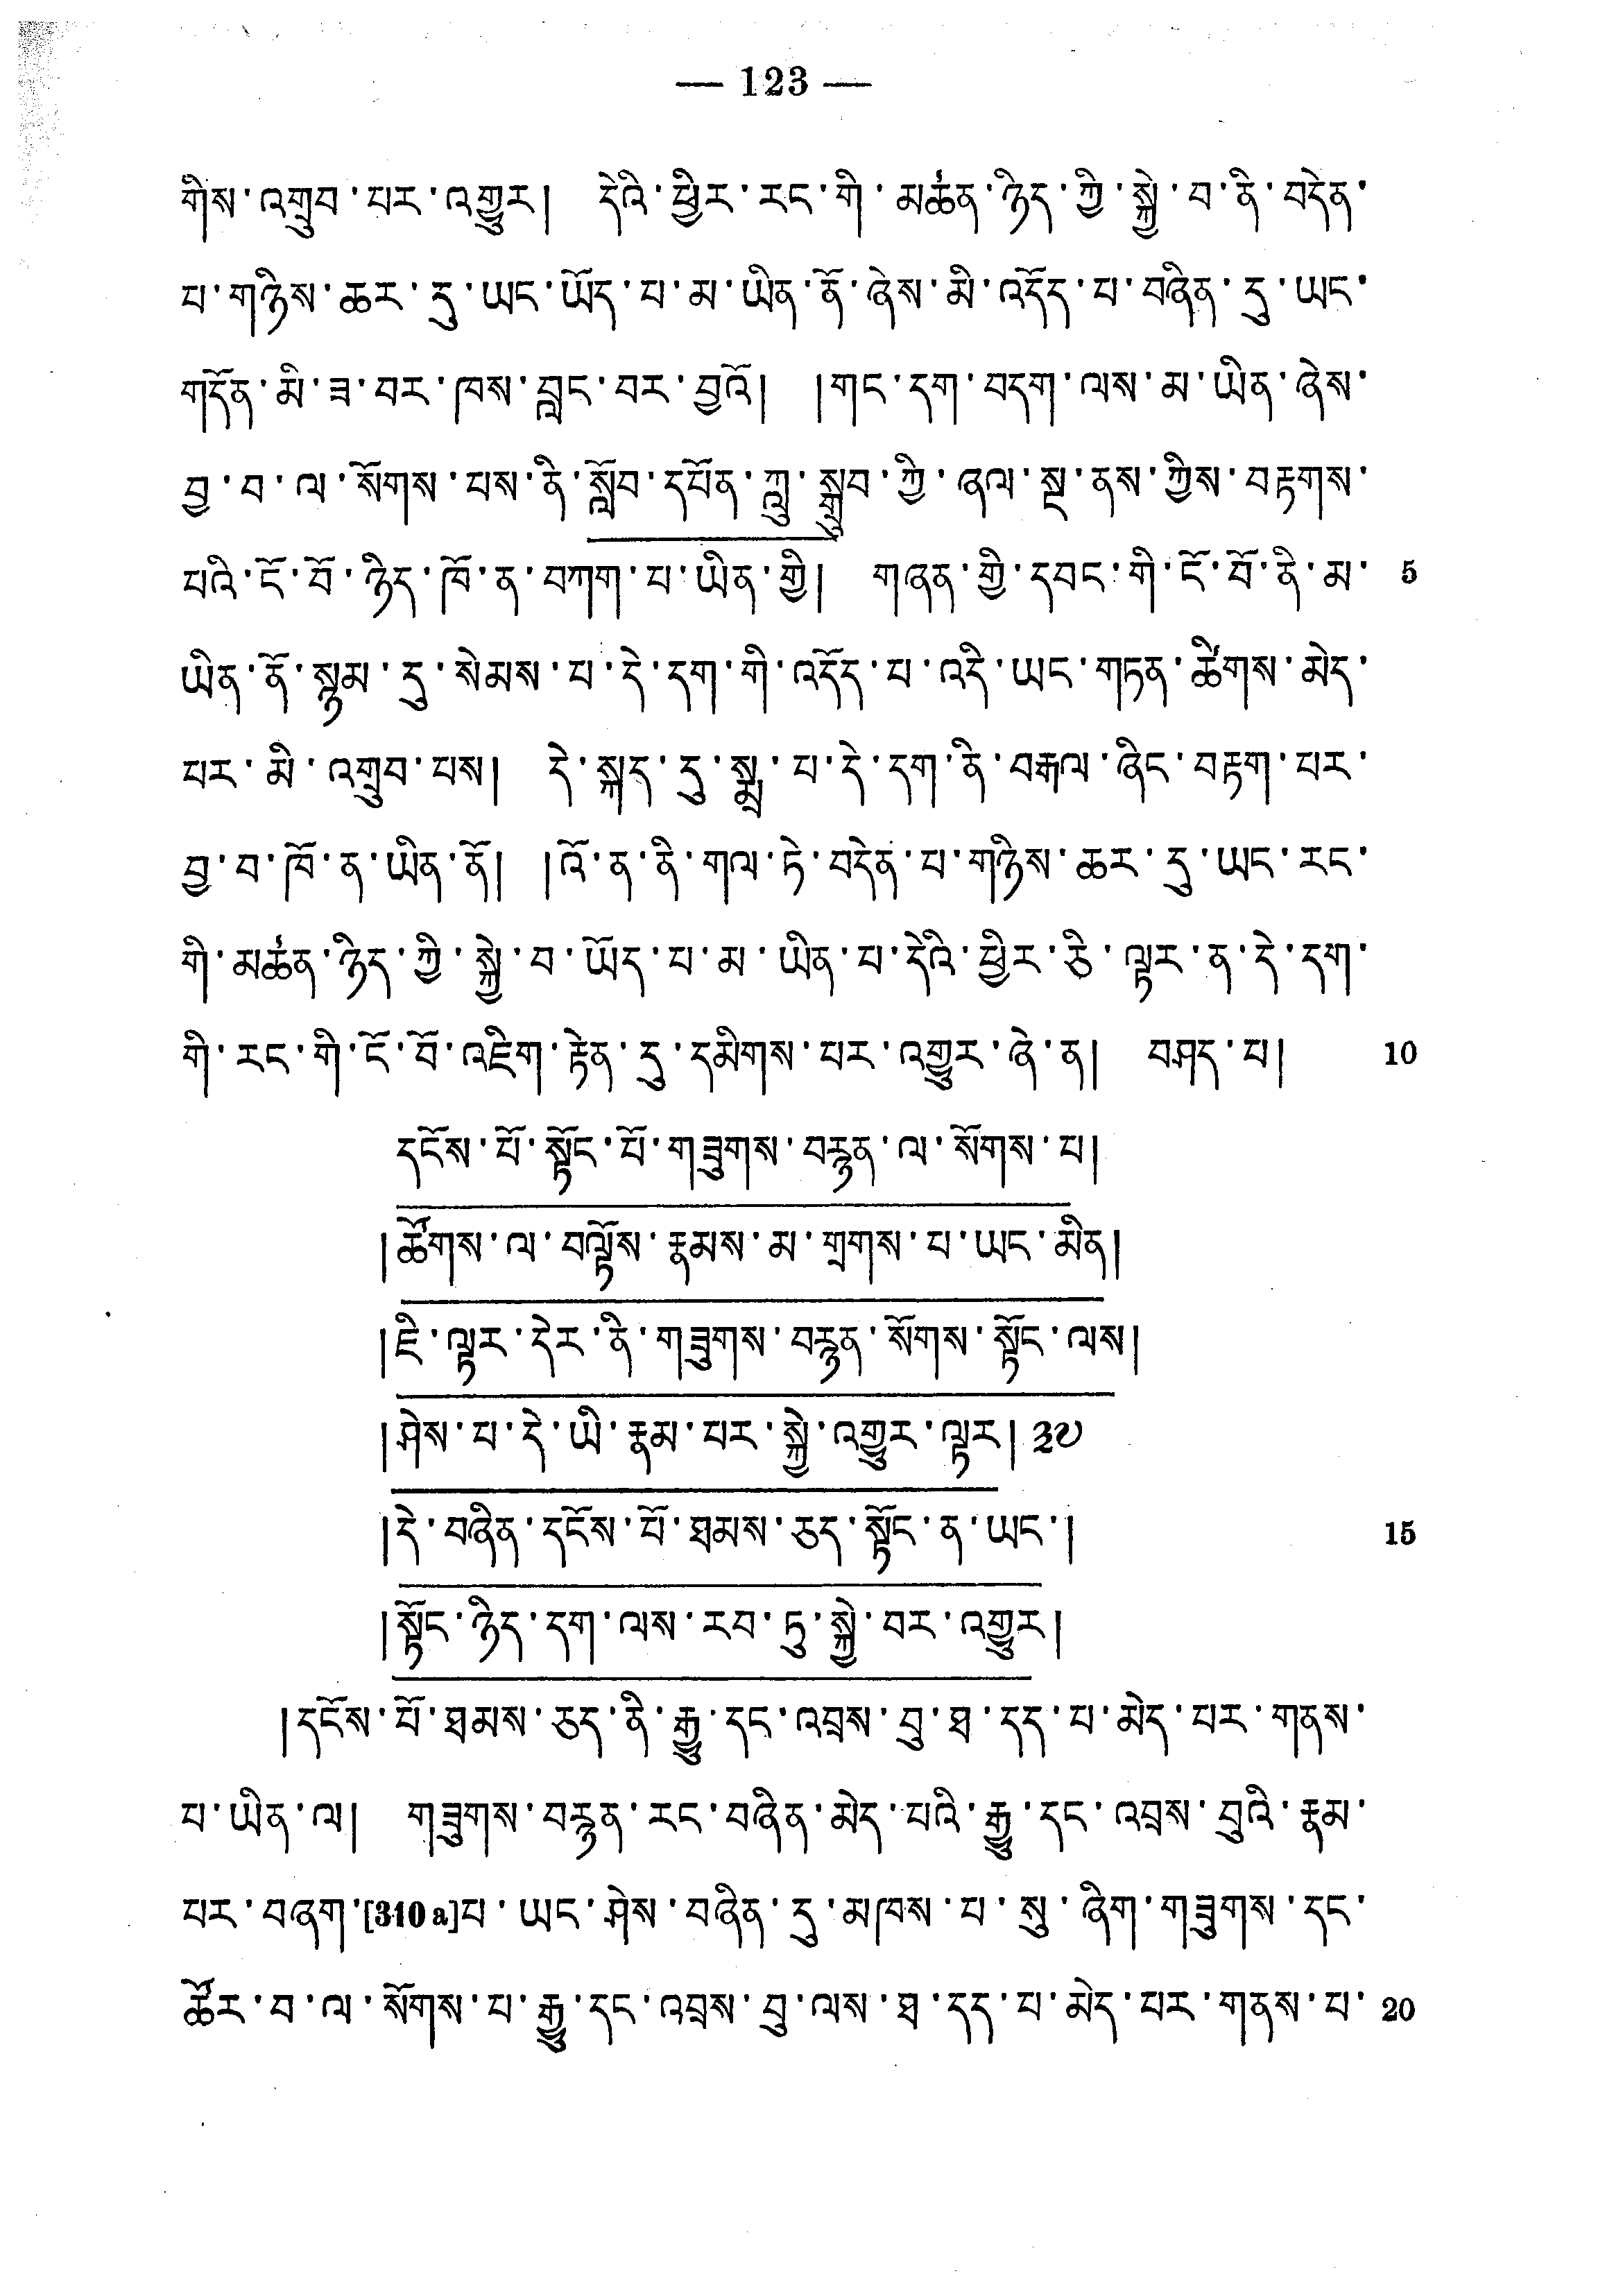 — 123 —
གིས་འགྲུབ་པར་འགྱུར། དེའི་ཕྱིར་རང་གི་མཚན་ཉིད་ཀྱི་སྐྱེ་བ་ནི་བདེན་
པ་གཉིས་ཆར་དུ་ཡང་ཡོད་པ་མ་ཡིན་ནོ་ཞེས་མི་འདོད་པ་བཞིན་དུ་ཡང་
གདོན་མི་ཟ་བར་ཁས་བླང་བར་བྱའོ། །གང་དག་བདག་ལས་མ་ཡིན་ཞེས་
བྱ་བ་ལ་སོགས་པས་ནི་སློབ་དཔོན་ཀླུ་སྒྲུབ་ཀྱི་ཞལ་སྔ་ནས་ཀྱིས་བརྟགས་
པའི་ངོ་བོ་ཉིད་ཁོ་ན་བཀག་པ་ཡིན་གྱི། གཞན་གྱི་དབང་གི་ངོ་བོ་ནི་མ་ 5
ཡིན་ནོ་སྙམ་དུ་སེམས་པ་དེ་དག་གི་འདོད་པ་འདི་ཡང་གཏན་ཚིགས་མེད་
པར་མི་འགྲུབ་པས། དེ་སྐད་དུ་སྨྲ་པ་དེ་དག་ནི་བརྒལ་ཞིང་བརྟག་པར་
བྱ་བ་ཁོ་ན་ཡིན་ནོ། །འོ་ན་ནི་གལ་ཏེ་བདེན་པ་གཉིས་ཆར་དུ་ཡང་རང་
གི་མཚན་ཉིད་ཀྱི་སྐྱེ་བ་ཡོད་པ་མ་ཡིན་པ་དེའི་ཕྱིར་ཅི་ལྟར་ན་དེ་དག་
གི་རང་གི་ངོ་བོ་འཇིག་རྟེན་དུ་དམིགས་པར་འགྱུར་ཞེ་ན། བཤད་པ། 10
དངོས་པོ་སྟོང་པོ་གཟུགས་བརྙན་ལ་སོགས་པ།
།ཚོགས་ལ་བལྟོས་རྣམས་མ་གྲགས་པ་ཡང་མིན།
།ཇི་ལྟར་དེར་ནི་གཟུགས་བརྙན་སོགས་སྟོང་ལས།
།ཤེས་པ་དེ་ཡི་རྣམ་པར་སྐྱེ་འགྱུར་ལྟར། ༣༧
།དེ་བཞིན་དངོས་པོ་ཐམས་ཅད་སྟོང་ན་ཡང་། 15
།སྟོང་ཉིད་དག་ལས་རབ་ཏུ་སྐྱེ་བར་འགྱུར།
།དངོས་པོ་ཐམས་ཅད་ནི་རྒྱུ་དང་འབྲས་བུ་ཐ་དད་པ་མེད་པར་གནས་
པ་ཡིན་ལ། གཟུགས་བརྙན་རང་བཞིན་མེད་པའི་རྒྱུ་དང་འབྲས་བུའི་རྣམ་
པར་བཞག་[310a]པ་ཡང་ཤེས་བཞིན་དུ་མཁས་པ་སུ་ཞིག་གཟུགས་དང་
ཚོར་བ་ལ་སོགས་པ་རྒྱུ་དང་འབྲས་བུ་ལས་ཐ་དད་པ་མེད་པར་གནས་པ་ 20